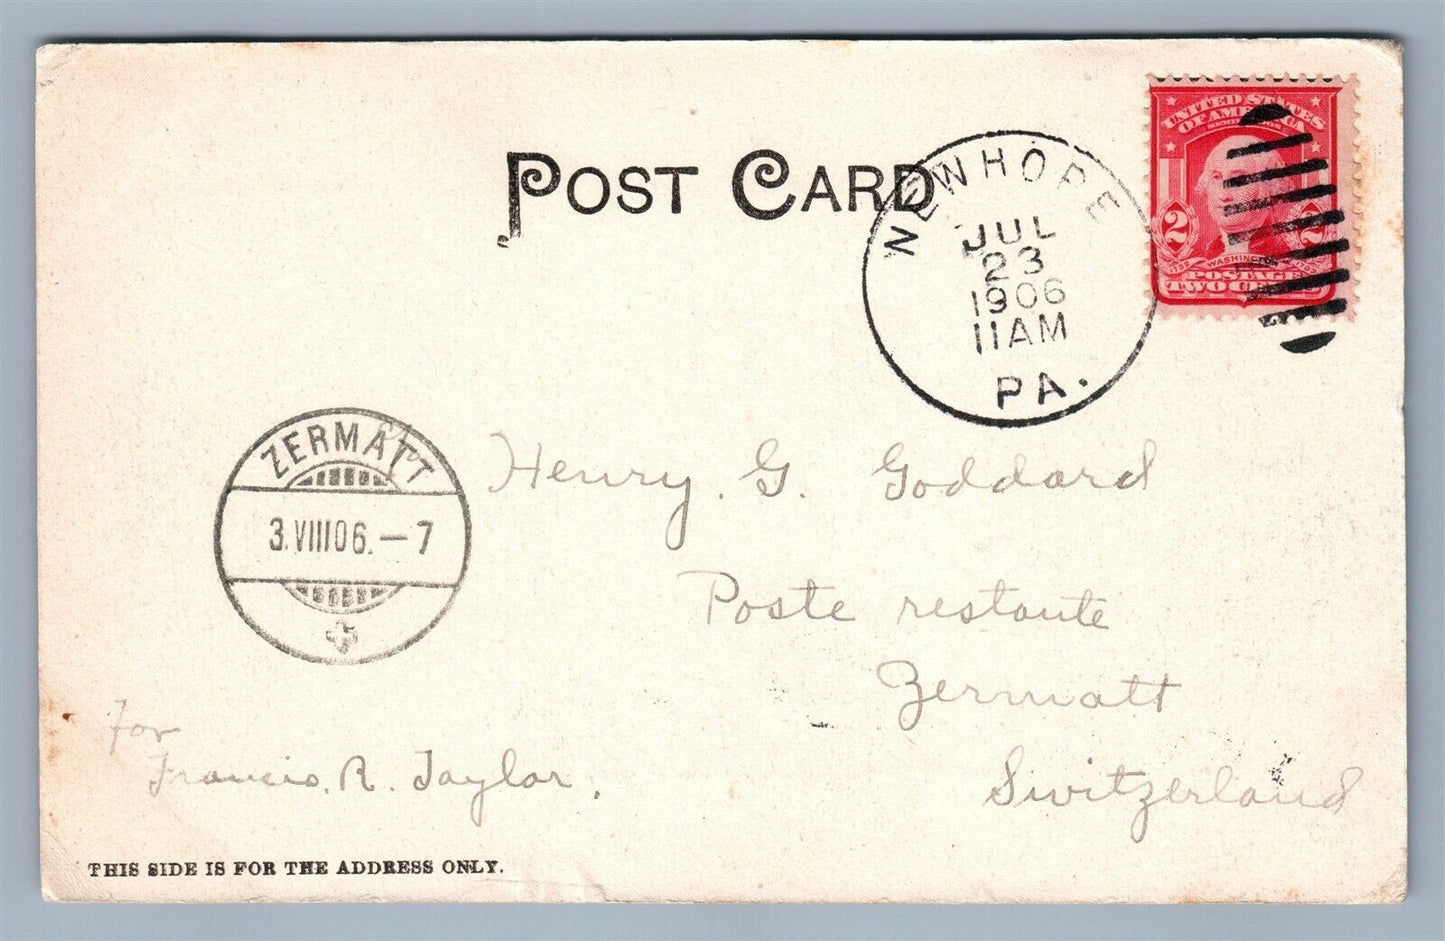 POST CARD
NEWHOPE
JUL
23
1906
11AM
PA.
UNITED STATES
OF AMERICA
2 2
1732 WASHINGTON 1799
POSTAGE
TWO CENTS
ZERMATT
3.VIII06.—7
Henry. G. Goddard
Poste restante
Zermatt
Switzerland
For
Francis. R. Taylor.
THIS SIDE IS FOR THE ADDRESS ONLY.